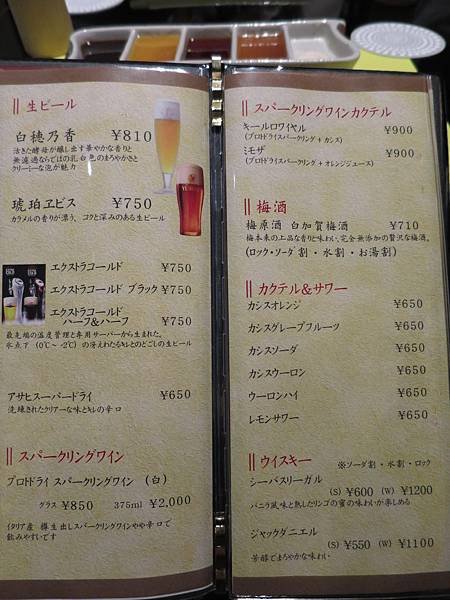 生ビール
白穂乃香 ¥810
活きた酵母が醸し出す華やかな香りと
無濾過ならではの乳白色のまろやかさと
クリーミーな泡が魅力
琥珀ヱビス ¥750
カラメルの香りが漂う、コクと深みのある生ビール
エクストラコールド ¥750
エクストラコールド ブラック ¥750
エクストラコールド
ハーフ&ハーフ ¥750
最先端の温度管理と専用サーバーから生まれた、
氷点下(0℃~-2℃)の冴えわたるキレとのどごしの生ビール
アサヒスーパードライ ¥650
洗練されたクリアーな味とキレの辛口
スパークリングワイン
プロドライ スパークリングワイン (白)
グラス ¥850 375ml ¥2,000
イタリア産 樽生出しスパークリングワインやや辛口で
飲みやすいです
スパークリングワインカクテル
キールロワイヤル ¥900
(プロドライスパークリング+カシス)
ミモザ ¥900
(プロドライスパークリング+オレンジジュース)
梅酒
梅原酒 白加賀梅酒 ¥710
梅本来の上品な香りと味わい、完全無添加の贅沢な梅酒。
(ロック・ソーダ割・水割・お湯割)
カクテル&サワー
カシスオレンジ ¥650
カシスグレープフルーツ ¥650
カシスソーダ ¥650
カシスウーロン ¥650
ウーロンハイ ¥650
レモンサワー ¥650
ウイスキー ※ソーダ割・水割・ロック
シーバスリーガル
(S) ¥600 (W) ¥1200
バニラ風味と熟したリンゴの蜜の味わいが楽しめる
ジャックダニエル
(S) ¥550 (W) ¥1100
芳醇でまろやかな味わい